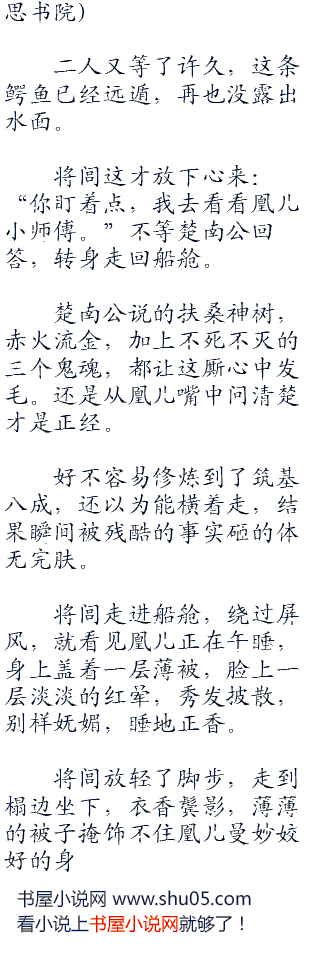 思书院)
二人又等了许久，这条
鳄鱼已经远遁，再也没露出
水面。
将闾这才放下心来：
“你盯着点，我去看看凰儿
小师傅。”不等楚南公回
答，转身走回船舱。
楚南公说的扶桑神树，
赤火流金，加上不死不灭的
三个鬼魂，都让这厮心中发
毛。还是从凰儿嘴中问清楚
才是正经。
好不容易修炼到了筑基
八成，还以为能横着走，结
果瞬间被残酷的事实砸的体
无完肤。
将闾走进船舱，绕过屏
风，就看见凰儿正在午睡，
身上盖着一层薄被，脸上一
层淡淡的红晕，秀发披散，
别样妩媚，睡地正香。
将闾放轻了脚步，走到
榻边坐下，衣香鬓影，薄薄
的被子掩饰不住凰儿曼妙姣
好的身
书屋小说网 www.shu05.com
看小说上书屋小说网就够了！